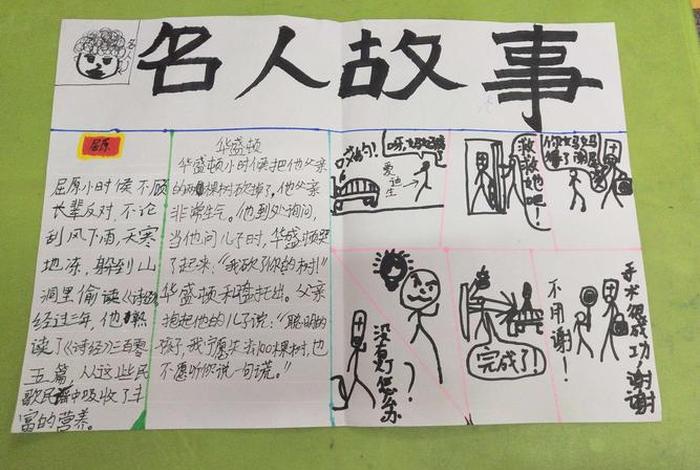 名人
名人故事
屈原
屈原小时候不顾
长辈反对,不论
刮风下雨,天寒
地冻,躲到山
洞里偷读《诗经》
经过三年,他熟
读了《诗经》三百零
五篇 从这些民
歌民谣中吸收了丰
富的营养。
华盛顿
华盛顿小时候把他父亲
的两棵树砍掉了。他父亲
非常生气。他到处询问,
当他问儿子时,华盛顿哭
了起来:“我砍了你的树!”
华盛顿和盘托出。父亲
抱起他的儿子说:“聪明的
孩子,我宁愿失去100棵树,也
不愿听你说一句谎。”
爱迪生
救救她吧!
没有灯怎么办
?
完成了!
不用谢!
手术很成功!谢谢